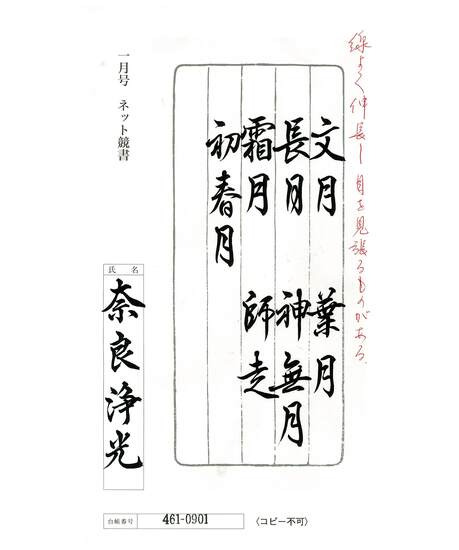 線よく伸長し目を見張るものがある。
文月　葉月
長月　神無月
霜月　師走
初春月
一月号　ネット競書
氏名
奈良浄光
台帳番号 461-0901 〈コピー不可〉